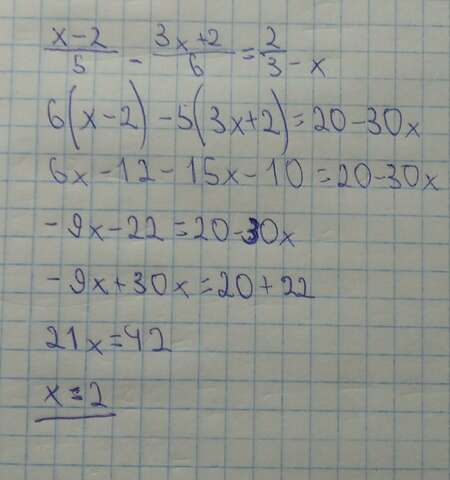 x-2/5 - 3x+2/6 = 2/3 - x
6(x-2) - 5(3x+2) = 20-30x
6x-12-15x-10=20-30x
-9x-22=20-30x
-9x+30x=20+22
21x=42
x=2